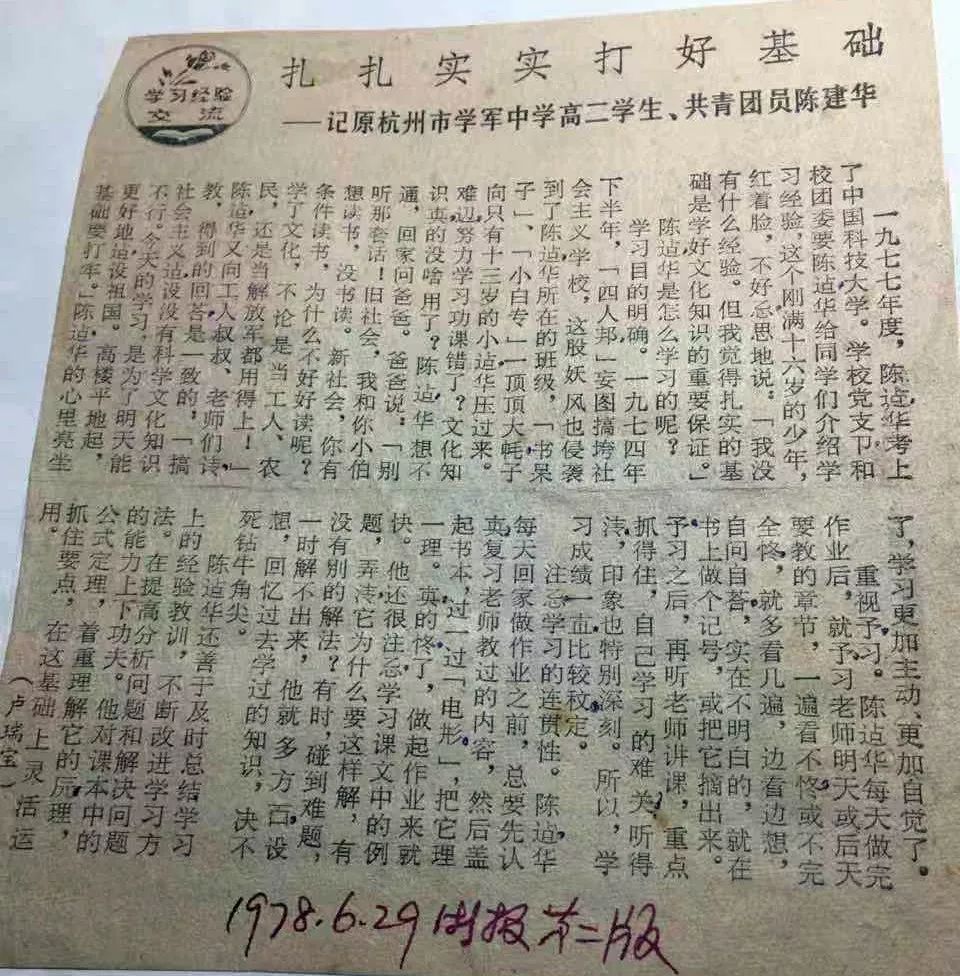 学习经验
交流
扎扎实实打好基础
——记原杭州市学军中学高二学生、共青团员陈建华
一九七七年度，陈迠华考上
了中国科技大学。学校党支卩和
校团委要陈迠华给同学们介绍学
习经验，这个刚满十六岁的少年，
红着脸，不好意思地说：“我没
有什么经验。但我觉得扎实的基
础是学好文化知识的重要保证。”
陈迠华是怎么学习的呢？
学习目的明确。一九七四年
下半年，“四人邦”妄图搞垮社
会主义学校，这股妖风也侵袭
到了陈迠华所在的班级，“书呆
子”、“小白专”一顶顶大帽子
向只有十三岁的小迠华压过来。
难道努力学习功课错了？文化知
识真的没啥用了？陈迠华想不
通，回家问爸爸。爸爸说：“别
听那套话！旧社会，我和你小伯
想读书，没书读。新社会，你有
条件读书，为什么不好好读呢？
学了文化，不论是当工人、农
民，还是当解放军都用得上！”
陈迠华又向工人叔叔、老师们请
教，得到的回答是一致的，“搞
社会主义迠设没有科学文化知识
不行。今天的学习，是为了明天能
更好地迠设祖国。高楼平地起，
基础要打牢。”陈迠华的心里亮生
了，学习更加主动、更加自觉了。
重视予习。陈迠华每天做完
作业后，就予习老师明天或后天
要教的章节，一遍看不懂或不完
全懂，就多看几遍，边看边想，
自问自答，实在不明白的，就在
书上做个记号，或把它摘出来。
予习之后，再听老师讲课，重点
抓得住，自己学习的难关听得
清，印象也特别深刻。所以，学
习成绩一直比较稳定。
注意学习的连贯性。陈迠华
每天回家做作业之前，总要先认
真复习老师教过的内容，然后盖
起书本，过一过「电影」，把它理
一理。真的懂了，做起作业来就
快。他还很注意学习课文中的例
题，弄清它为什么要这样解，有
没有别的解法？有时，碰到难题，
一时解不出来，他就多方面设
想，回忆过去学过的知识，决不
死钻牛角尖。
陈迠华还善于及时总结学习
上的经验教训，不断改进学习方
法。在提高分析问题和解决问题
的能力上下功夫。他对课本中的
公式定理，着重理解它的原理，
抓住要点，在这基础上灵活运
用。
（卢瑞宝）
1978.6.29 浙报第二版